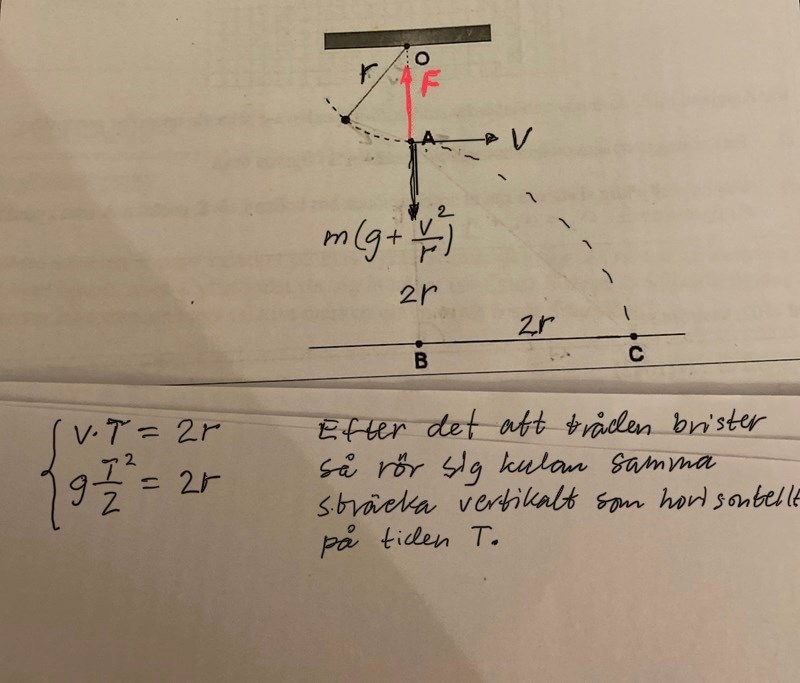 O
r
F
A
V
m(g + v²/r)
2r
2r
B
C
v·T = 2r
g T²/2 = 2r
Efter det att tråden brister
så rör sig kulan samma
sträcka vertikalt som horisontellt
på tiden T.